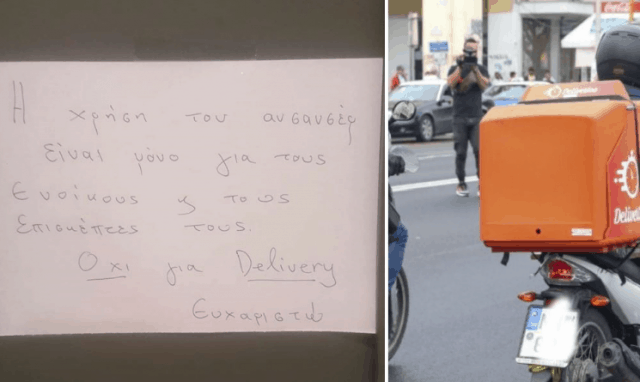 Η χρήση του ανσανσέρ
είναι μόνο για τους
Ενοίκους κ τους
Επισκέπτες τους.
Όχι για Delivery
Ευχαριστώ